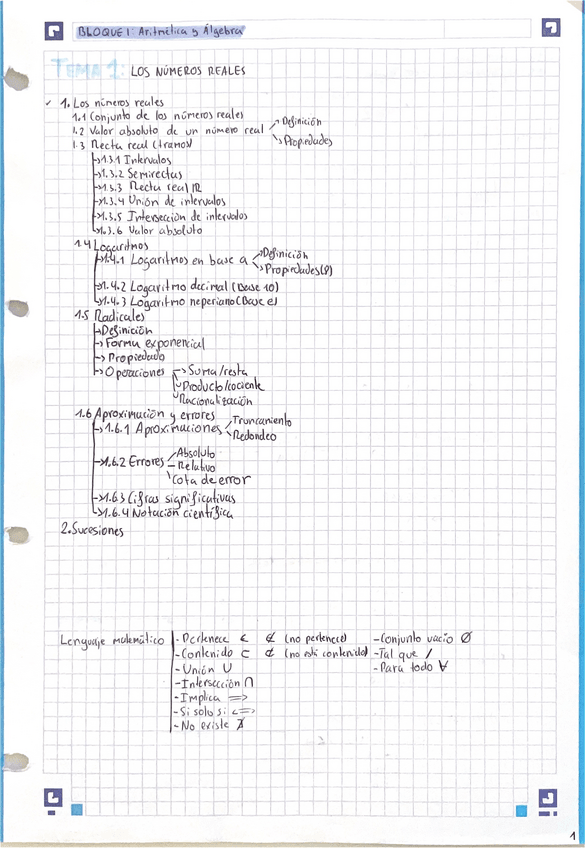 BLOQUE I: Aritmética y Álgebra
TEMA 1: LOS NÚMEROS REALES
✓ 1. Los números reales
1.1 Conjunto de los números reales
1.2 Valor absoluto de un número real → Definición
→ Propiedades
1.3 Recta real (tramos)
→ 1.3.1 Intervalos
→ 1.3.2 Semirectas
→ 1.3.3 Recta real ℝ
→ 1.3.4 Unión de intervalos
→ 1.3.5 Intersección de intervalos
→ 1.3.6 Valor absoluto
1.4 Logaritmos
→ 1.4.1 Logaritmos en base a → Definición
→ Propiedades (8)
→ 1.4.2 Logaritmo decimal (Base 10)
→ 1.4.3 Logaritmo neperiano (Base e)
1.5 Radicales
→ Definición
→ Forma exponencial
→ Propiedades
→ Operaciones → Suma/resta
→ Producto/cociente
→ Racionalización
1.6 Aproximación y errores
→ 1.6.1 Aproximaciones → Truncamiento
→ Redondeo
→ 1.6.2 Errores → Absoluto
→ Relativo
→ Cota de error
→ 1.6.3 Cifras significativas
→ 1.6.4 Notación científica
2. Sucesiones
Lenguaje matemático - Pertenece ∈ ∉ (no pertenece) - Conjunto vacío Ø
- Contenido ⊂ ⊄ (no está contenido) - Tal que /
- Unión ∪ - Para todo ∀
- Intersección ∩
- Implica ⇒
- Si solo si ⇔
- No existe ∄
1